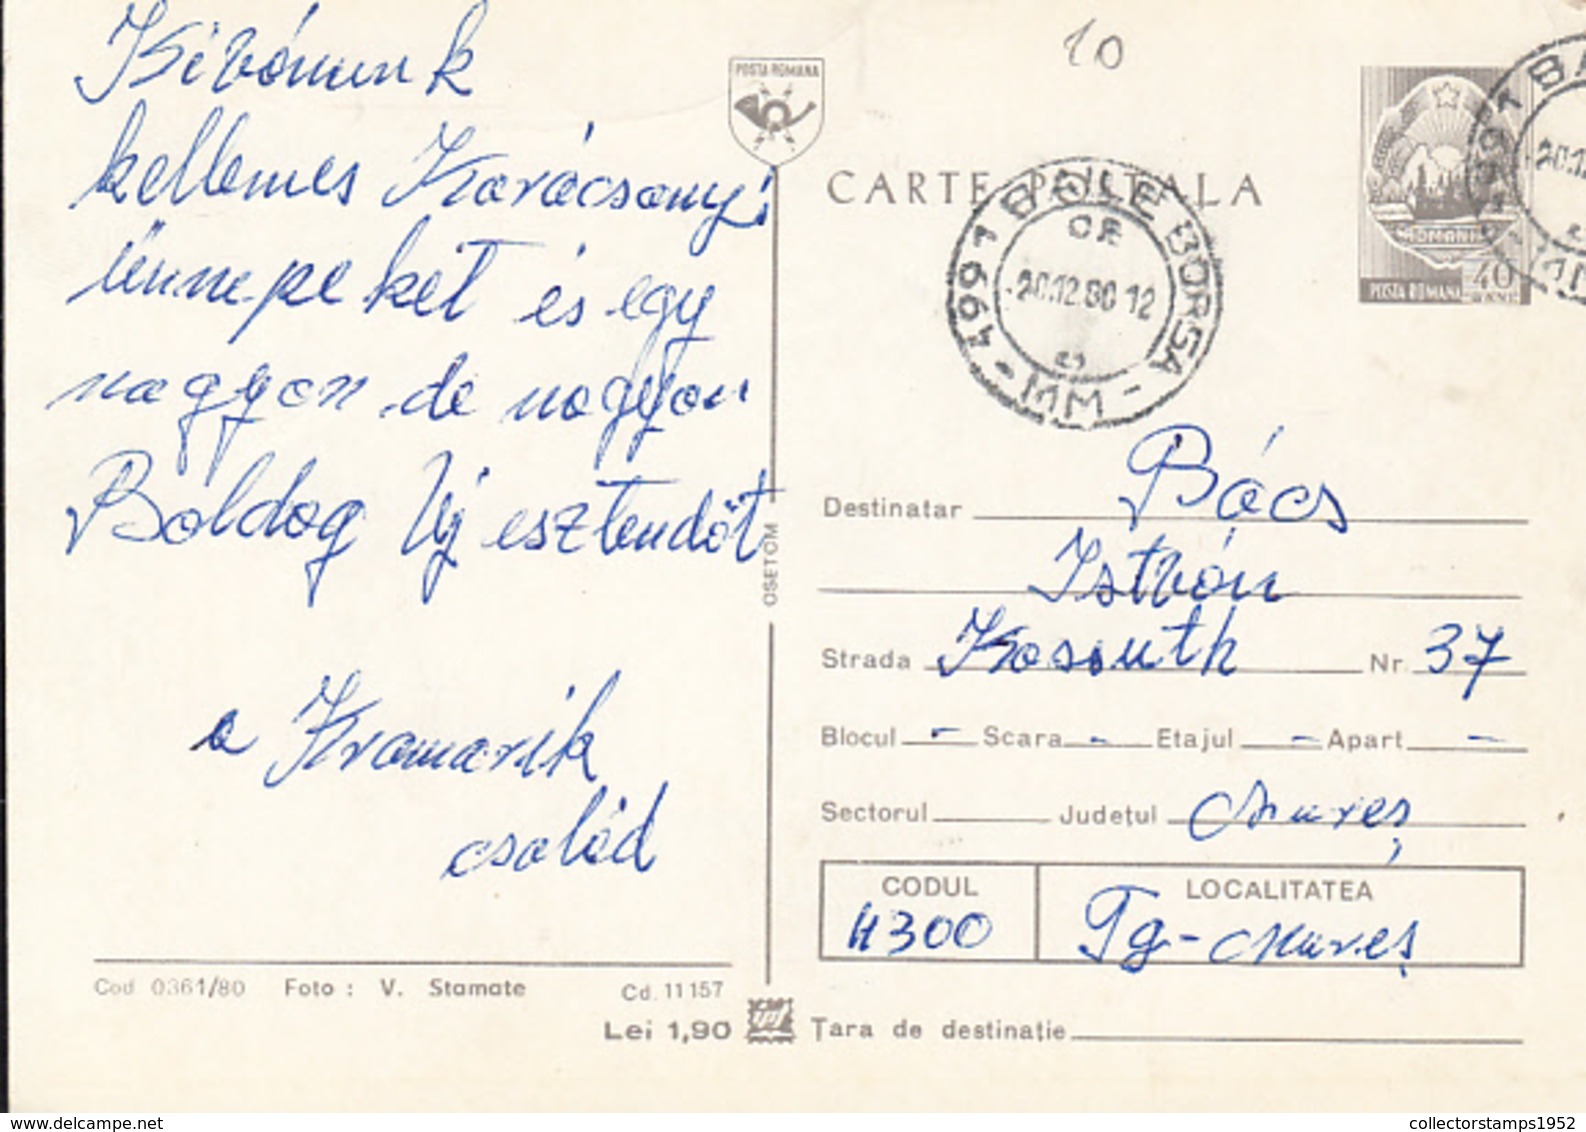 Kivánunk
kellemes Karácsonyi
ünnepeket és egy
nagyon de nagyon
Boldog Új esztendőt
a Kramarik
család
Cod 0361/80 Foto : V. Stamate Cd. 11157
Lei 1,90
POSTA ROMANA
OSETCM
10
CARTE POSTALA
4661 BAILE BORSA
20.12.80 12
MM
ROMANIA
POSTA ROMANA 40 BANI
Destinatar Bács
István
Strada Kosouth Nr. 37
Blocul - Scara - Etajul - Apart -
Sectorul Județul Mureș
CODUL LOCALITATEA
4300 Tg-Mureș
Țara de destinație
delcampe.net
collectorstamps1952